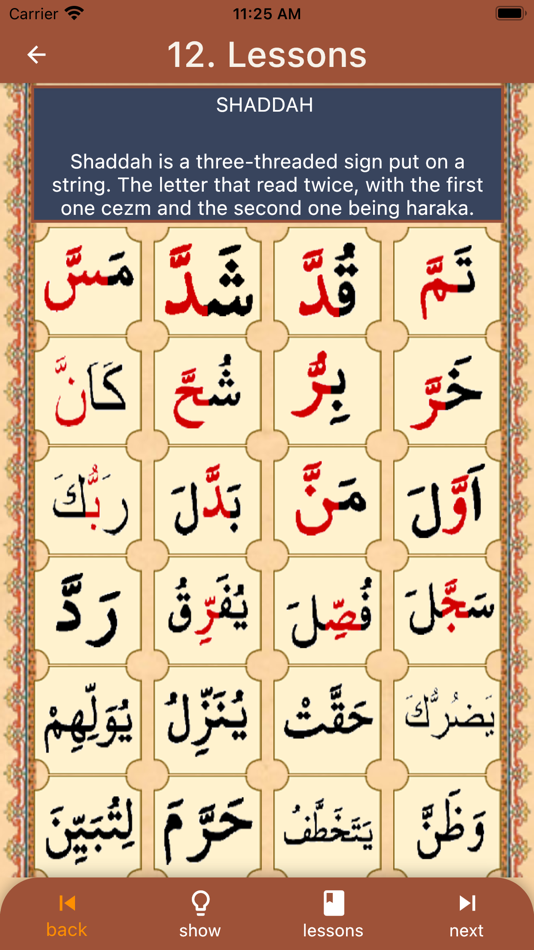 Carrier 11:25 AM
12. Lessons
SHADDAH
Shaddah is a three-threaded sign put on a
string. The letter that read twice, with the first
one cezm and the second one being haraka.
تَمَّ قُدَّ شَدَّ مَسَّ
خَرَّ بِرُّ شُحَّ كَانَّ
اَوَّلَ مَنَّ بَدَّلَ رَبُّكَ
سَجَّلَ فُصِّلَ يُفَرِّقُ رَدَّ
يَضُرُّكَ حَقَّتْ يُنَزِّلُ يُوَلِّهِمْ
وَظَنَّ يَتَخَطَّفُ حَرَّمَ لِتُبَيِّنَ
back show lessons next